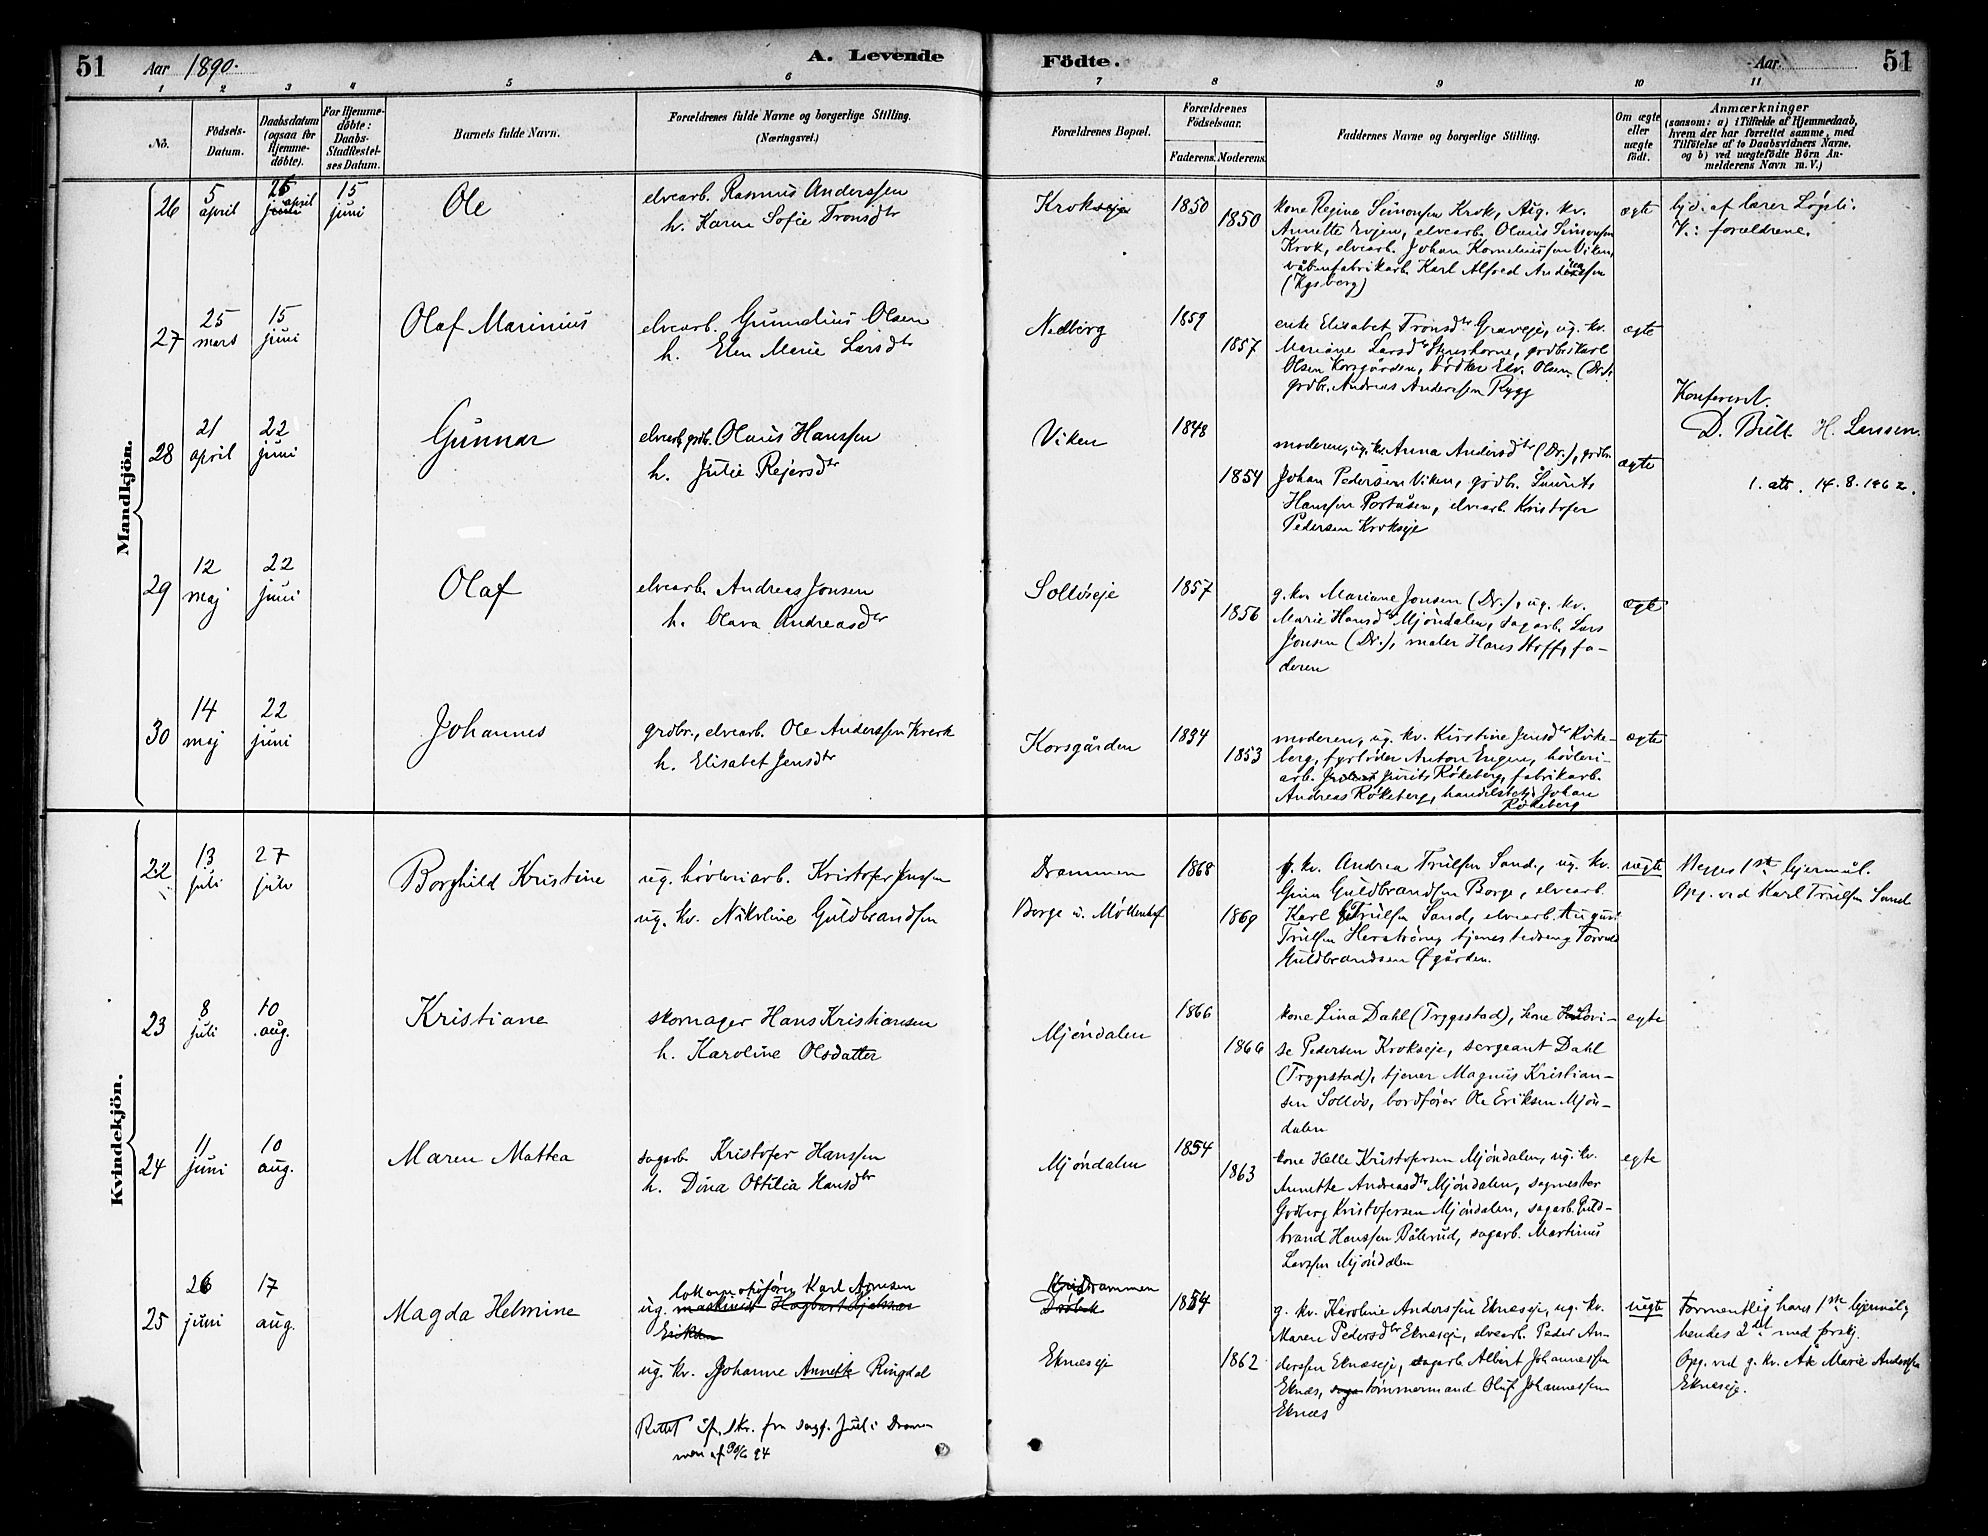 51
Aar 1890.
A. Levende
Födte.
Aar.
51
1 2 3 4 5 6 7 8 9 10 11
No.
Födsels-Datum.
Daabsdatum (ogsaa for Hjemme-döbte).
For Hjemme-döbte: Daabs-Stadfæstel-ses Datum.
Barnets fulde Navn.
Forældrenes fulde Navne og borgerlige Stilling.
(Næringsvei.)
Forældrenes Bopæl.
Forældrenes Födselsaar.
Faderens. Moderens.
Faddernes Navne og borgerlige Stilling.
Om ægte eller uægte födt.
Anmærkninger
(saasom: a) i Tilfælde af Hjemmedaab, hvem der har forrettet samme, med Tilföielse af to Daabsvidners Navne, og b) ved uægtefödte Börn An-melderens Navn m. V.)
Mandkjön.
26
5 april
26 april
15 juni
Ole
elvearb. Rasmus Anderssen
h. Karen Sofie Tronsdtr
Krokseje
1850
1850
kone Regine Simonsen Krok, Aug. kv.
Annette Evjen, elvearb. Olaus Simonsen
Krok, elvearb. Johan Kornelinssen Viken,
våbenfabrikarb. Karl Alfred
(Kgsberg)
ægte
hjd. af lærer Løpli.
V.: forældrene.
27
25 mars
15 juni
Olaf Marinius
elvearb. Gunnelius Olsen
h. Elen Marie Larsdtr
Nedberg
1859
1857
enke Elisabet Tronsdtr Graveje, ug. kv.
Mariane Larsdtr, grdbr. Karl
Olsen Korsgården, bødker Edv. Olsen (Dr.)
grdbr. Andreas Anderssen Rygg
ægte
28
21 april
22 juni
Gunnar
elvearb. grdb. Olaus Hanssen
h. Julie Rejersdtr
Viken
1848
1854
moderen, ug. kv. Anna Andersdtr (Dr.), grdbr.
Johan Pedersen Viken, grdb. Laurits
Hanssen Portåsen, elvearb. Kristofer
Pedersen Krokseje
ægte
Konfereret.
D. Bull. H. Larssen.
1. att. 14.8.1962.
29
12 maj
22 juni
Olaf
elvearb. Andreas Jonsen
h. Olava Andreasdtr
Solløseje
1857
1856
g. kv. Mariane Jonsen (Dr.), ug. kv.
Marie Hansdtr Mjøndalen, sagarb. Lars
Jonsen (Dr.), maler Hans Hoff, fa-
deren
ægte
30
14 maj
22 juni
Johannes
grdbr., elvearb. Ole Anderssen Kverk
h. Elisabet Jensdtr
Korsgården
1834
1853
moderen, ug. kv. Kirstine Jensdtr Røke-
berg, fyrbøder Anton Engen, høvleri-
arb. Jurits Røkeberg, fabrikarb.
Andreas Røkeberg, handelsbetj. Johan
Røkeberg
ægte
Kvindekjön.
22
13 juli
27 juli
Borghild Kristine
ug. høvleriarb. Kristofer Jenssen
ug. kv. Nikoline Guldbrandsen
Drammen
Borge u. Møllenhof
1868
1869
g. kv. Andrea Trulsen Sand, ug. kv.
Gina Guldbrandsen Borge, elvearb.
Karl Trulsen Sand, elvearb. August
Trulsen Herstrøm, tjenestedreng Torvald
Guldbrandsen Øgården.
uægte
Begges 1ste lejermål.
Opg. ved Karl Trulsen Sand
23
8 juli
10 aug.
Kristiane
skomager Hans Kristiansen
h. Karoline Olsdatter
Mjøndalen
1866
1866
kone Lina Dahl (Trygstad), kone Lovi-
se Pedersen Krokseje, sergeant Dahl
(Trygstad), tjener Magnus Kristian-
sen Solløs, bordfører Ole Eriksen Mjøn-
dalen
egte
24
11 juni
10 aug.
Maren Mattea
sagarb. Kristofer Hanssen
h. Dina Ottilia Hansdtr
Mjøndalen
1854
1863
kone Helle Kristofersen Mjøndalen, ug. kv.
Annette Andreasdtr Mjøndalen, sagmester
Godberg Kristofersen Mjøndalen, sagarb. Guld-
brand Hanssen Dålerud, sagarb. Martinus
Larssen Mjøndalen
egte
25
26 juni
17 aug.
Magda Helmine
lokomotivfører Karl Arnesen
ug. maskinist Hagbart Hjelmar
Eriksen
ug. kv. Johanne Annette Ringdal
Rettet if. skr. fra sogf. Juel i Dram-
men af 30/6 94
Drammen
Eknæseje
1854
1862
g. kv. Karoline Anderssen Eknæseje, ug. kv.
Maren Pedersdtr Eknæseje, elvearb. Peder An-
derssen Eknæseje, sagarb. Albert Johannessen
Eknæs, tømmermand Oluf Johannessen
Eknæs
uægte
Formentlig hans 1ste lejermål,
hendes 2det med forskj.
Opg. ved g. kv. Ak Marie Anderssen
Eknæseje.